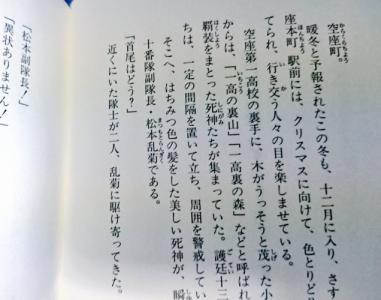 空座町。
暖冬と予報されたこの冬も、十二月に入り、さす
座本町駅前には、クリスマスに向けて、色とりど
てられ、行き交う人々の目を楽しませている。
空座第一高校の裏手に、木がうっそうと茂った小
からは、「一高の裏山」「一高裏の森」などと呼ばれ
覇装をまとった死神たちが集まっていた。護廷十三
ちは、一定の間隔を置いて立ち、周囲を警戒してい
そこへ、はちみつ色の髪をした美しい死神が、瞬
十番隊副隊長、松本乱菊である。
「首尾はどう?」
近くにいた隊士が二人、乱菊に駆け寄ってきた。
「松本副隊長!」
「異状ありません!」